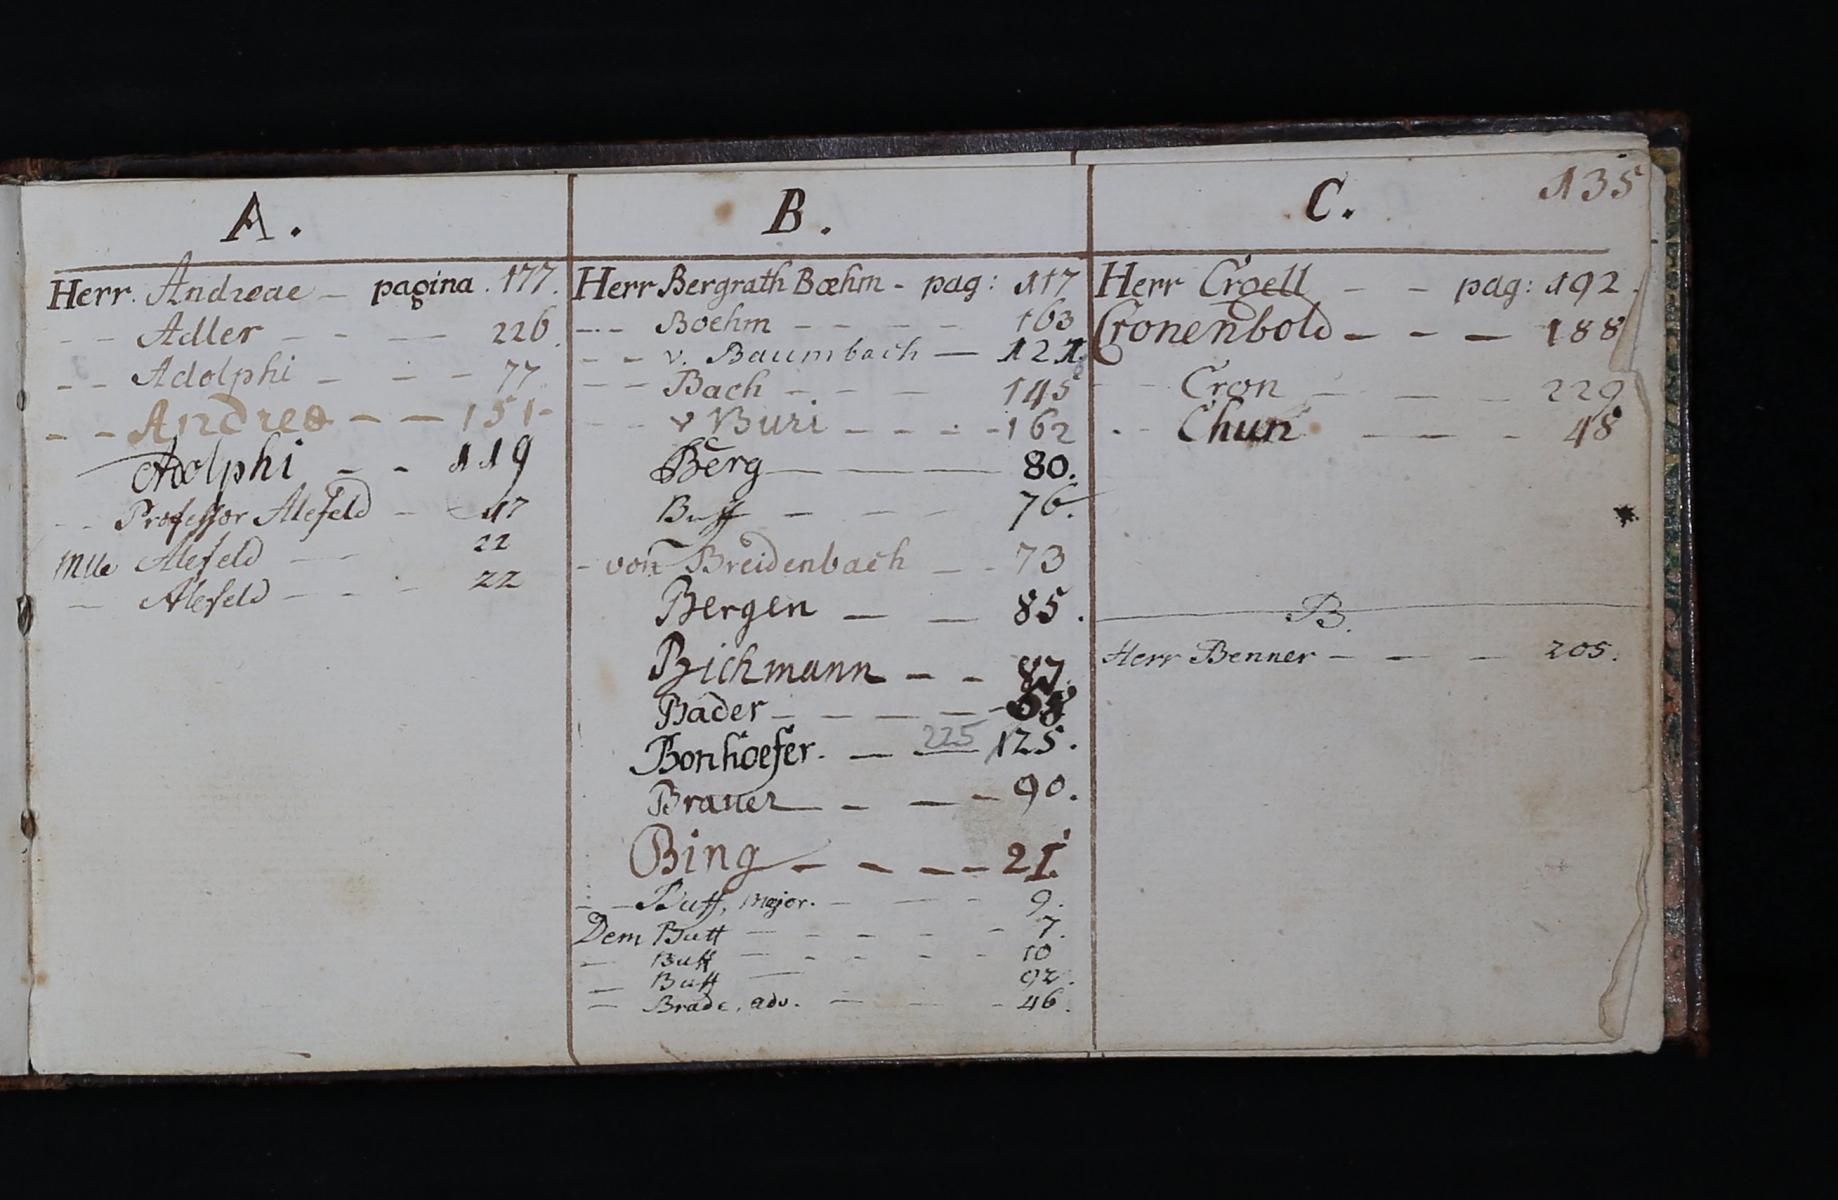 135
A.
Herr. Andreae - pagina . 177.
- - Adler - - - 226.
- - Adolphi - - - 77.
- - Andrea - - 151-
Adolphi - - 119
- - Professor Alefeld - 17
Mlle Alefeld - - 22
- Alefeld - - - 22
B.
Herr Bergrath Bœhm - pag: 117
- - - Boehm - - - - 163
- - v. Baumbach - 121.
- - Bach - - - 145
- - v Buri - - - - 162
Berg - - - 80.
Buff - - - 76.
- von Breidenbach - - 73
Bergen - - 85.
Bichmann - - 87.
Bader - - - - -
Bonhoefer. - 225 125.
Brauer - - - 90.
Bing - - - - 21.
- - Buff, Major. - - - 9.
Dem Buff - - - - - 7.
- Buff - - - - - 10
- Buff - 92.
- Brade, adv. - - - 46.
C.
Herr Croell - - pag: 192.
Cronenbold - - - 188
- - Cron - - - 229
- - Chun - - - 48
B.
Herr Benner - - - 205.